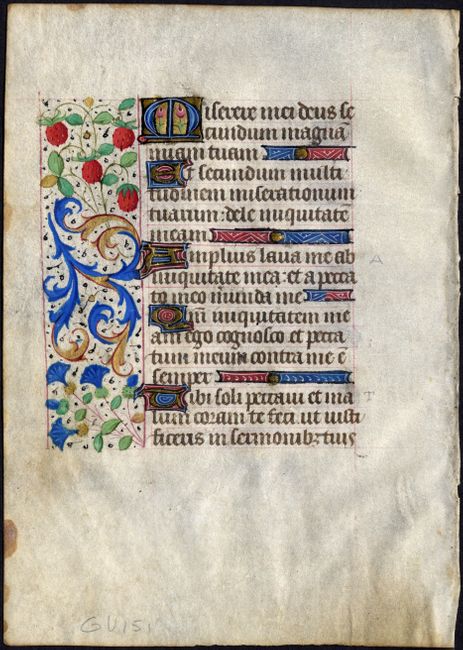 Miserere mei deus se
cundum magnā
miam tuam
Et secundum multi
tudinem miserationum
tuarum: dele iniquitatē
meam
Amplius lava me ab
A
iniquitate mea: et a pecca
to meo munda me
Qm̄ iniquitatem me
am ego cognosco et pecca
tum meum contra me ē
semper
Tibi soli peccavi et ma
T
lum coram te feci. ut iusti
ficeris in sermonibꝫ tuis
GU151